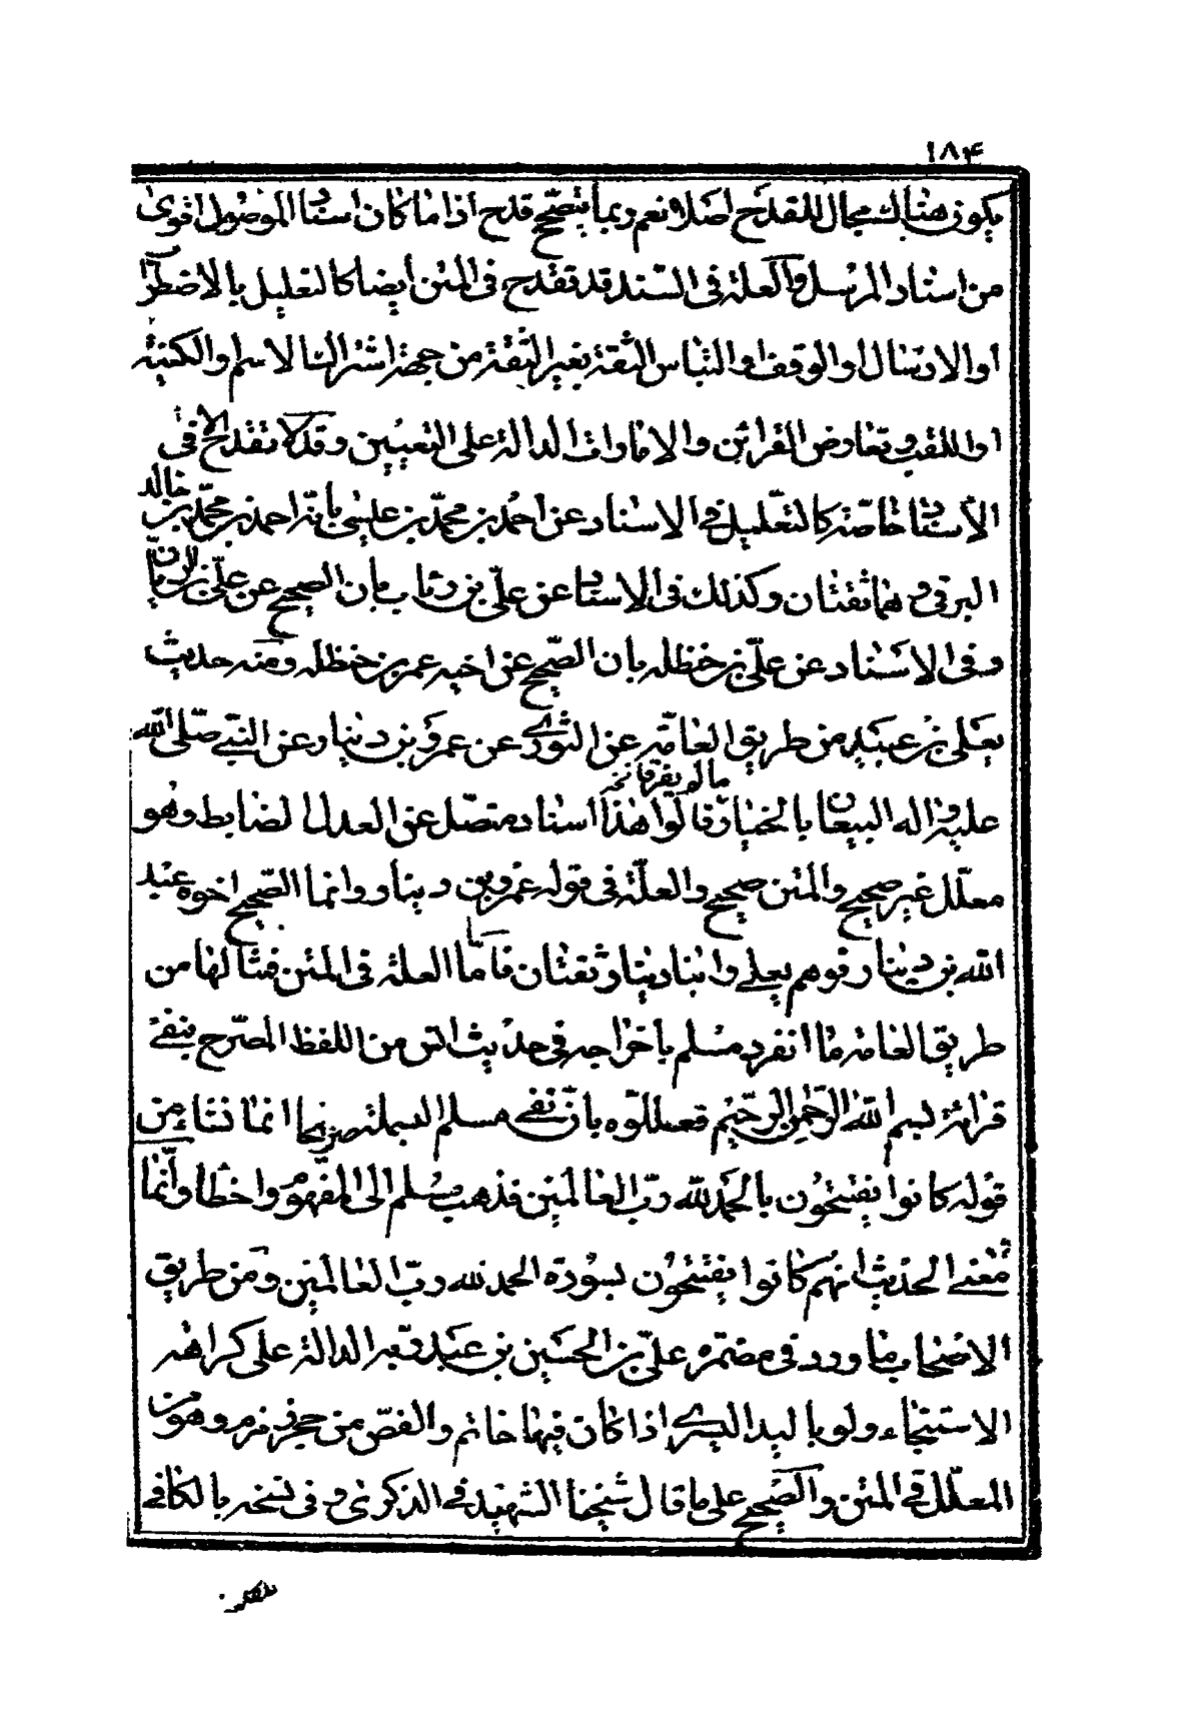 ۱۸۴
يكون هنالك مجال للقدح اصلا نعم ربما يتصحح قدح اذا ما كان اسناد الموصول اقوى
من اسناد المرسل والعلة فى السند قد تقدح فى المتن أيضا كالتعليل بالاضطراب
او الارسال او الوقف او التباس الثقة بغير الثقة من جهة اشتراك الاسم والكنية
او اللقب وتعارض القرائن والامارات الدالة على التعيين وقد لا تقدح الا فى
الاسناد خاصة كالتعليل فى الاسناد عن احمد بن محمد بن عيسى بانه احمد بن محمد بن خالد
البرقى وهما ثقتان وكذلك فى الاسناد عن على بن رئاب بان الصحيح عن على بن الريان
وفى الاسناد عن على بن حنظله بان الصحيح عن اخيه عمر بن حنظله ومنه حديث
يعلى بن عبيد من طريق العامة عن الثورى عن عمرو بن دينار عن النبى صلى الله
عليه واله البيعان بالخيار ما لم يفترقا قالوا هذا اسناد متصل عن العدل الضابط وهو
معلل غير صحيح والمتن صحيح والعلة فى قوله عمرو بن دينار وانما الصحيح اخوه عبد
الله بن دينار فوهم يعلى وابنا دينار ثقتان فاما العلة فى المتن فمثالها من
طريق العامه ما انفرد مسلم باخراجه فى حديث انس من اللفظ المصرح بنفى
قرائة بسم الله الرحمن الرحيم فعللوه بان نفى مسلم البسملة صريحا انما نشاء من
قوله كانوا يفتتحون بالحمد لله رب العالمين فذهب مسلم الى المفهوم واخطا وانما
معنى الحديث انهم كانوا يفتتحون بسورة الحمد لله رب العالمين ومن طريق
الاصحاب ما ورد فى مضمره على بن الحسين بن عبد ربه الدالة على كراهه
الاستنجاء ولو باليد اليسرى اذا كان فيها خاتم والفص من حجر زمزم وهو من
المعلل فى المتن والصحيح على ما قال شيخنا الشهيد فى الذكرى وفى نسخه بالكافى